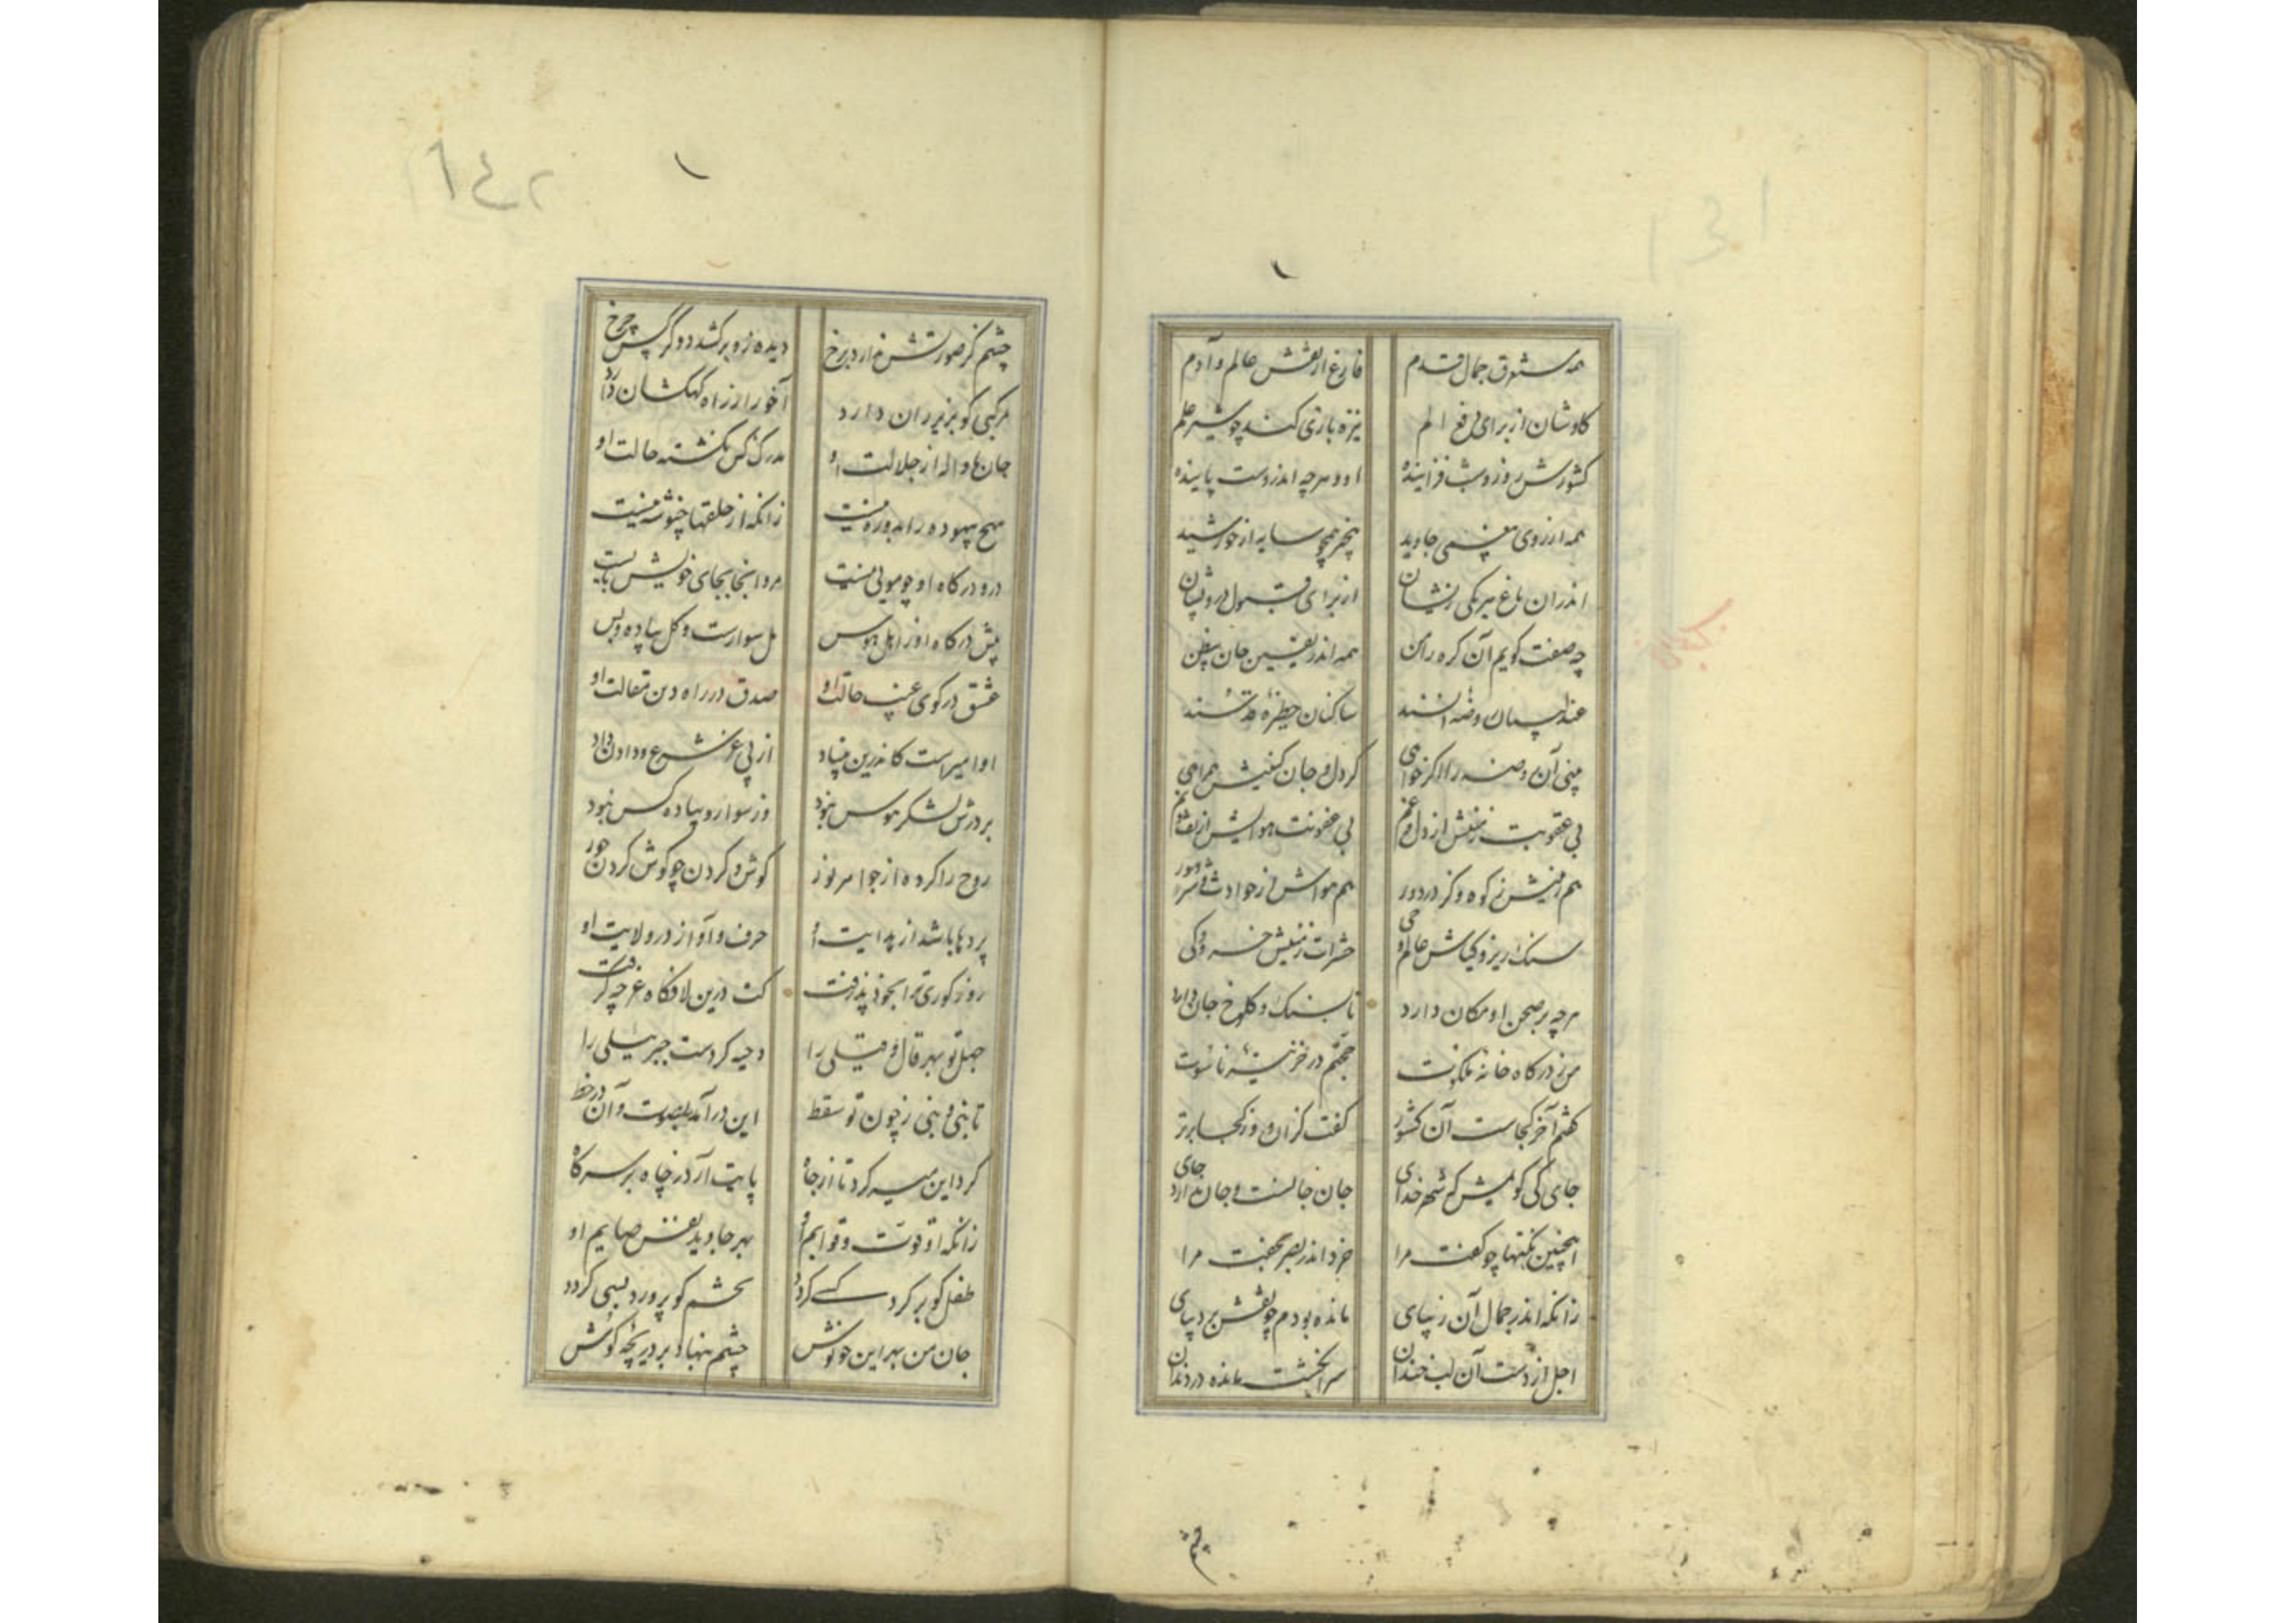 ١٤١
همه مستغرق جمال قدم
فارغ از نقش عالم و آدم
کاوشان از برای دفع الم
نیزه بازی کند چو شیر علم
کشورش روز و شب فزاینده
او و هرچه اندروست پاینده
همه از روی معنیی جاوید
همچو سایه از خورشید
اندران باغ هر یکی زیشان
از برای قبول درویشان
چه صفت گویم آن گره را من
همه اندر یقین جان بیظن
عندلیبان روضه انسند
ساکنان حظیره قدسند
بینی آن روضه را اگر خواهی
گر دل و جان کنیش همراهی
بی عقوبت زمینش از دل و غم
بی عفونت هوایش از تف و نم
هم زمینش ز کوه و گردر دور
هم هواش از حوادث و شر و شور
سنگ ریز و گیاش عالم و حی
حشرات زمینش خسرو و کی
هرچه بر صحن او مکان دارد
تا بسنگ و کلوخ جان دارد
من ز درگاه خانه ملکوت
جحتم در خزینه ناسوت
گفتم آخر کجاست آن کشور
گفت کز آن و از کجا برتر
جای کی گویمش که شهر خدای
جان جانست و جان ندارد جای
اینچنین نکتها چو گفت مرا
خرد اندر بصر بخفت مرا
زانکه اندر جمال آن زیبای
مانده بودم چو نقش بر دیبای
اجل از دست آن لب خندان
سرانگشت مانده در دندان
چشم
١٤٢
چشم کز صورتش ندارد برخ
دیده زو برکشد دو کرکس چرخ
مرکبی کو بزیر ران دارد
آخور از راه کهکشان دارد
جان ها واله از جلالت او
مدرک کس نگشته حالت او
هیچ بیهوده را بدو ره نیست
زانکه از خلقها چنو شه نیست
درو درگاه او چو مولی نیست
مرو اینجا بجای خویش بایست
پیش درگاه او ز اهل هوس
مل سوارست و گل پیاده و بس
عشق در کوی غیب حالت او
صدق در راه دین مقالت او
او امیرست کاندرین بنیاد
از پی عز شرع و دادن داد
بر درش لشکر هوس نبود
وز سوار و پیاده کس نبود
روح را کرده از جواهر نور
گوش و گردن چو گوش گردن حور
پردها باشد از بدایت او
حرف و آواز در ولایت او
روز کوری ترا بخود پذرفت
کت درین لافگاه غرچه گرفت
جهل تو بهر قال و قیلی را
دحیه کردست جبرئیلی را
تا بنی و بنی ز چون تو سقط
این درآمد بصوت و آن در خط
گرد این میر گرد تا از جاه
پایت آرد ز چاه بر سر گاه
زانکه او قوت و قوایم او
بهر جاوید نفس صایم او
طفل کو بر گرد کسی گردد
بحشم کو پرورد بسی گردد
جان من بهر این خوش نوش
چشم بنهاد بر دریچه گوش